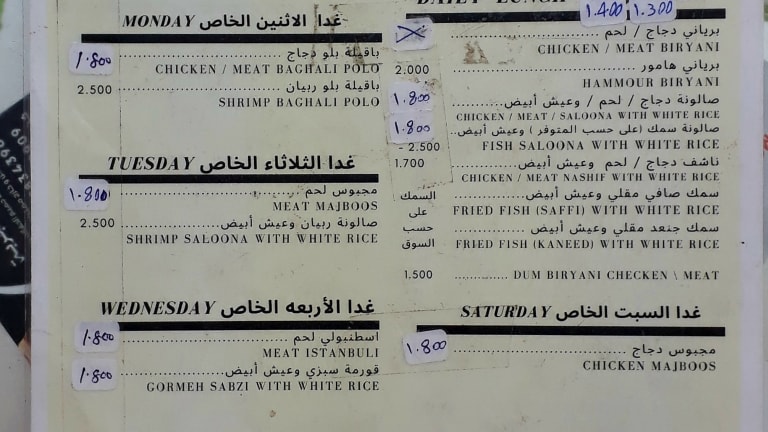 غدا الاثنين الخاص MONDAY
باقيلة بلو دجاج
1.800
CHICKEN / MEAT BAGHALI POLO
باقيلة بلو ربيان
2.500
SHRIMP BAGHALI POLO
غدا الثلاثاء الخاص TUESDAY
مجبوس لحم
1.800
MEAT MAJBOOS
صالونة ربيان وعيش أبيض
2.500
SHRIMP SALOONA WITH WHITE RICE
غدا الأربعه الخاص WEDNESDAY
اسطنبولي لحم
1.800
MEAT ISTANBULI
قورمة سبزي وعيش أبيض
1.800
GORMEH SABZI WITH WHITE RICE
DAILY LUNCH
1.400 1.300
برياني دجاج / لحم
CHICKEN / MEAT BIRYANI
برياني هامور
2.000
HAMMOUR BIRYANI
صالونة دجاج / لحم / وعيش أبيض
1.800
CHICKEN / MEAT / SALOONA WITH WHITE RICE
صالونة سمك (على حسب المتوفر) وعيش أبيض
1.800
- 2.500
FISH SALOONA WITH WHITE RICE
ناشف دجاج / لحم وعيش أبيض
1.700
CHICKEN / MEAT NASHIF WITH WHITE RICE
سمك صافي مقلي وعيش أبيض
FRIED FISH (SAFFI) WITH WHITE RICE
سمك جنعد مقلي وعيش أبيض
FRIED FISH (KANEED) WITH WHITE RICE
السمك
على
حسب
السوق
1.500 DUM BIRYANI CHECKEN \ MEAT
غدا السبت الخاص SATURDAY
مجبوس دجاج
1.800
CHICKEN MAJBOOS